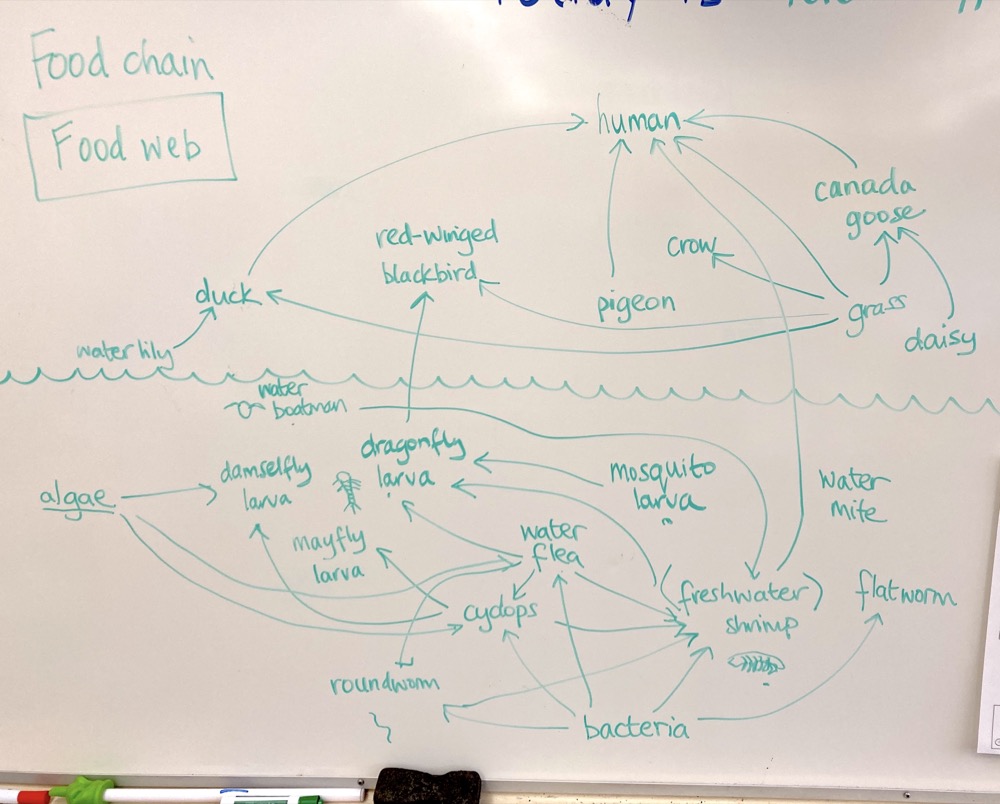 Food chain
Food web
human
canada
goose
red-winged
blackbird
crow
duck
pigeon
grass
daisy
water lily
water
boatman
dragonfly
larva
damselfly
larva
mosquito
larva
water
mite
algae
mayfly
larva
water
flea
cyclops
(freshwater)
shrimp
flatworm
roundworm
bacteria